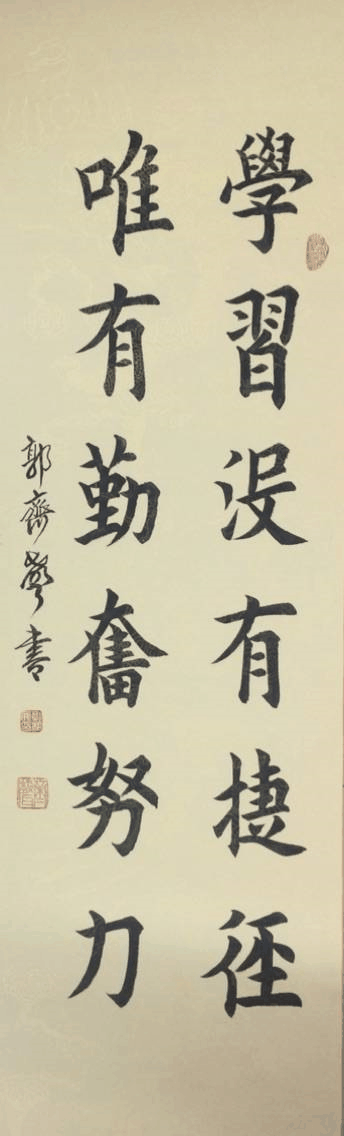 學習没有捷徑
唯有勤奮努力
郭齊
書